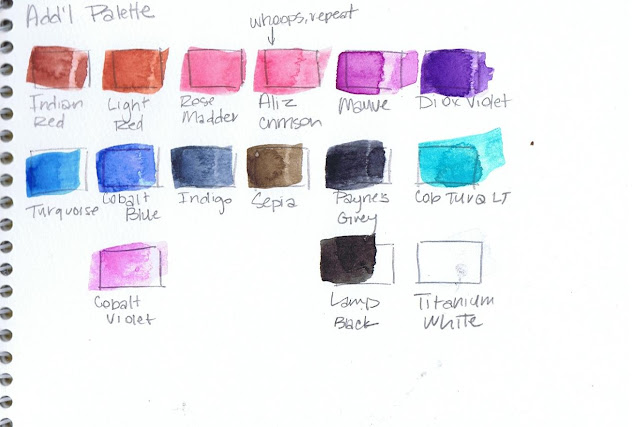 Add'l Palette
whoops, repeat
Indian
Red
Light
Red
Rose
Madder
Aliz
Crimson
Mauve
Diox Violet
Turquoise
Cobalt
Blue
Indigo
Sepia
Payne's
Grey
Cob Turq LT
Cobalt
Violet
Lamp
Black
Titanium
White